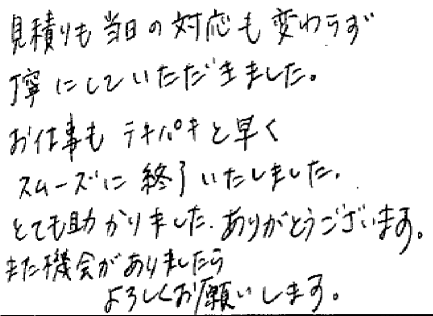 見積りも当日の対応も変わらず
丁寧にしていただきました。
お仕事もテキパキと早く
スムーズに終了いたしました。
とても助かりました。ありがとうございます。
また機会がありましたら
よろしくお願いします。